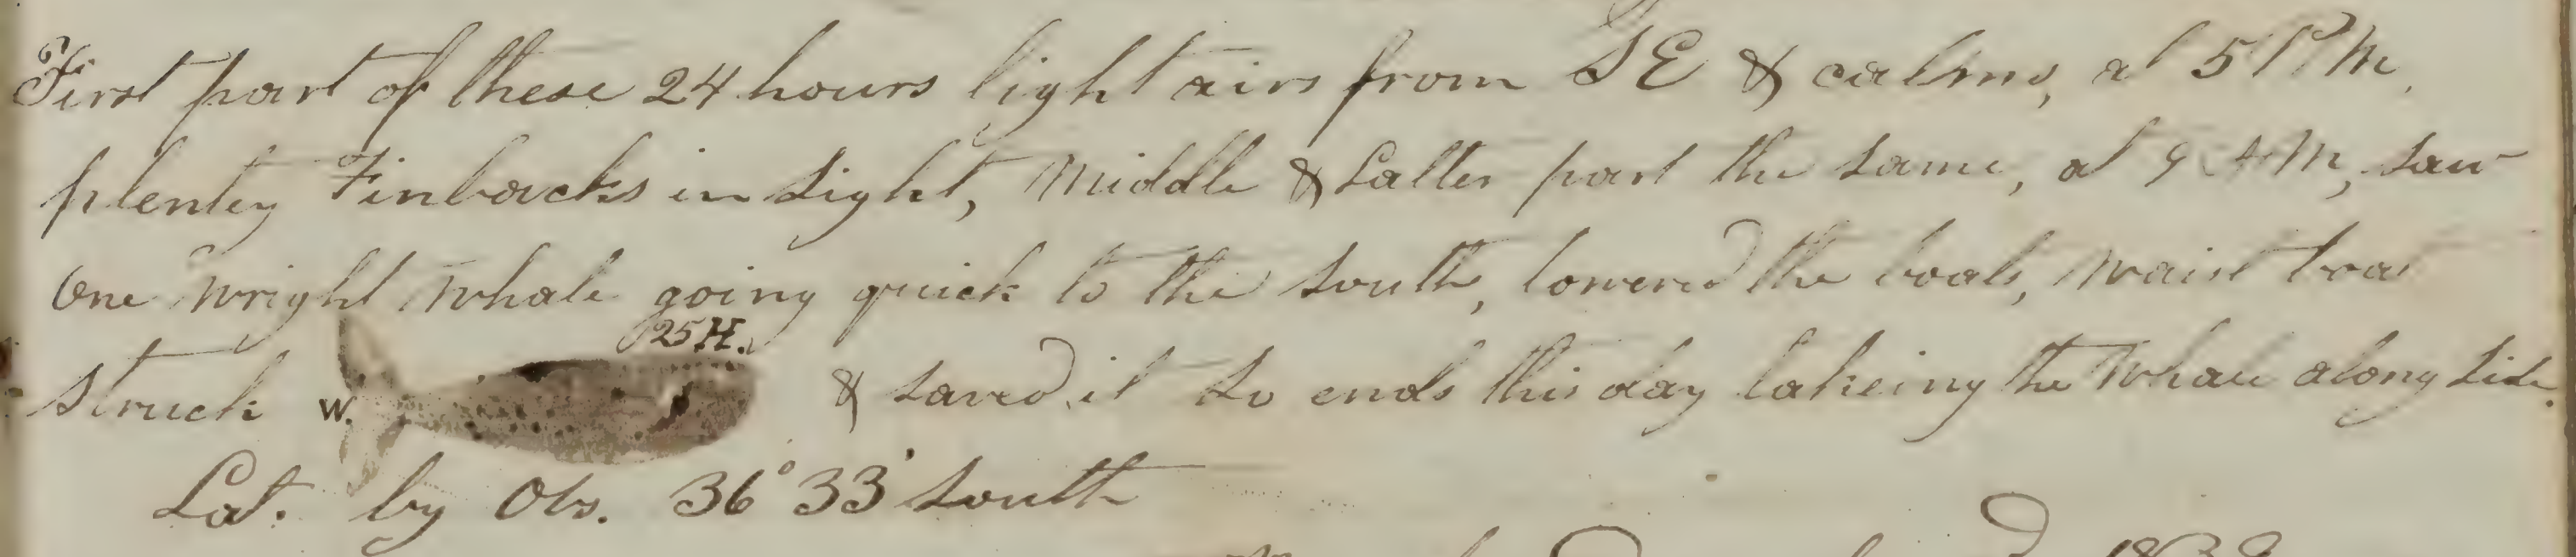 First part of these 24 hours light airs from SE & calms, at 5 PM,
plenty Finbacks in sight, Middle & Latter part the same, at 9 AM, saw
One Wright Whale going quick to the South, lowered the boats, Waist boat
25 H.
struck W. & saved it So ends this day takeing the Whale along side.
Lat. by Obs. 36° 33' South